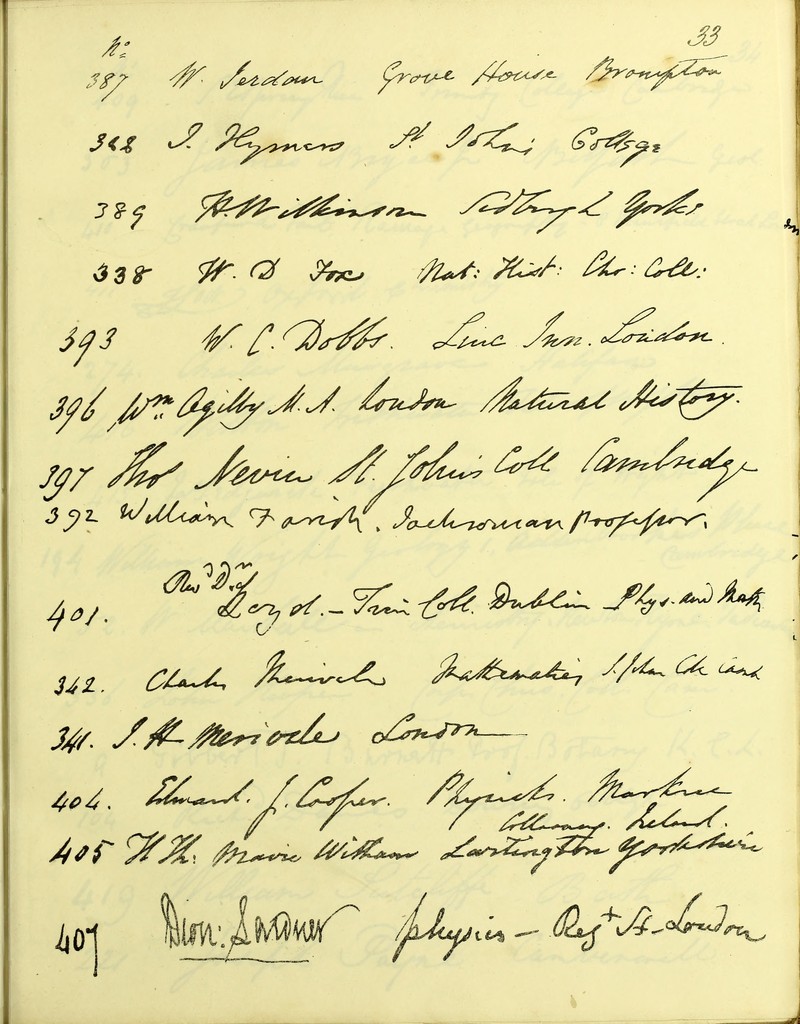 33
No
387 W. Jerdan Grove House Brompton
388 J. Hymers St John's College
389 H. Wilkinson Sedbergh Yorks
338 W. D Fox Nat: Hist: Chr: Coll:
393 W. C. Dobbs. Linc Inn. London.
396 Wm. Ogilby M. A. London Natural History.
397 Thos Nevin St. John's Coll Cambridge
392 William Farish. Jacksonian Professor.
Revd Dr
401. Lloyd. – Trin Coll. Dublin – Phys. and Math
342. Charles Merivale Mathematics S. John Coll Camb
341. J. H Merivale London
404. Edward. J. Cooper. Physicks. Markree
Collooney. Ireland.
405 H Th: Maire Witham Lartington Yorkshire
407 Dion: Lardner physics – Regt St – London